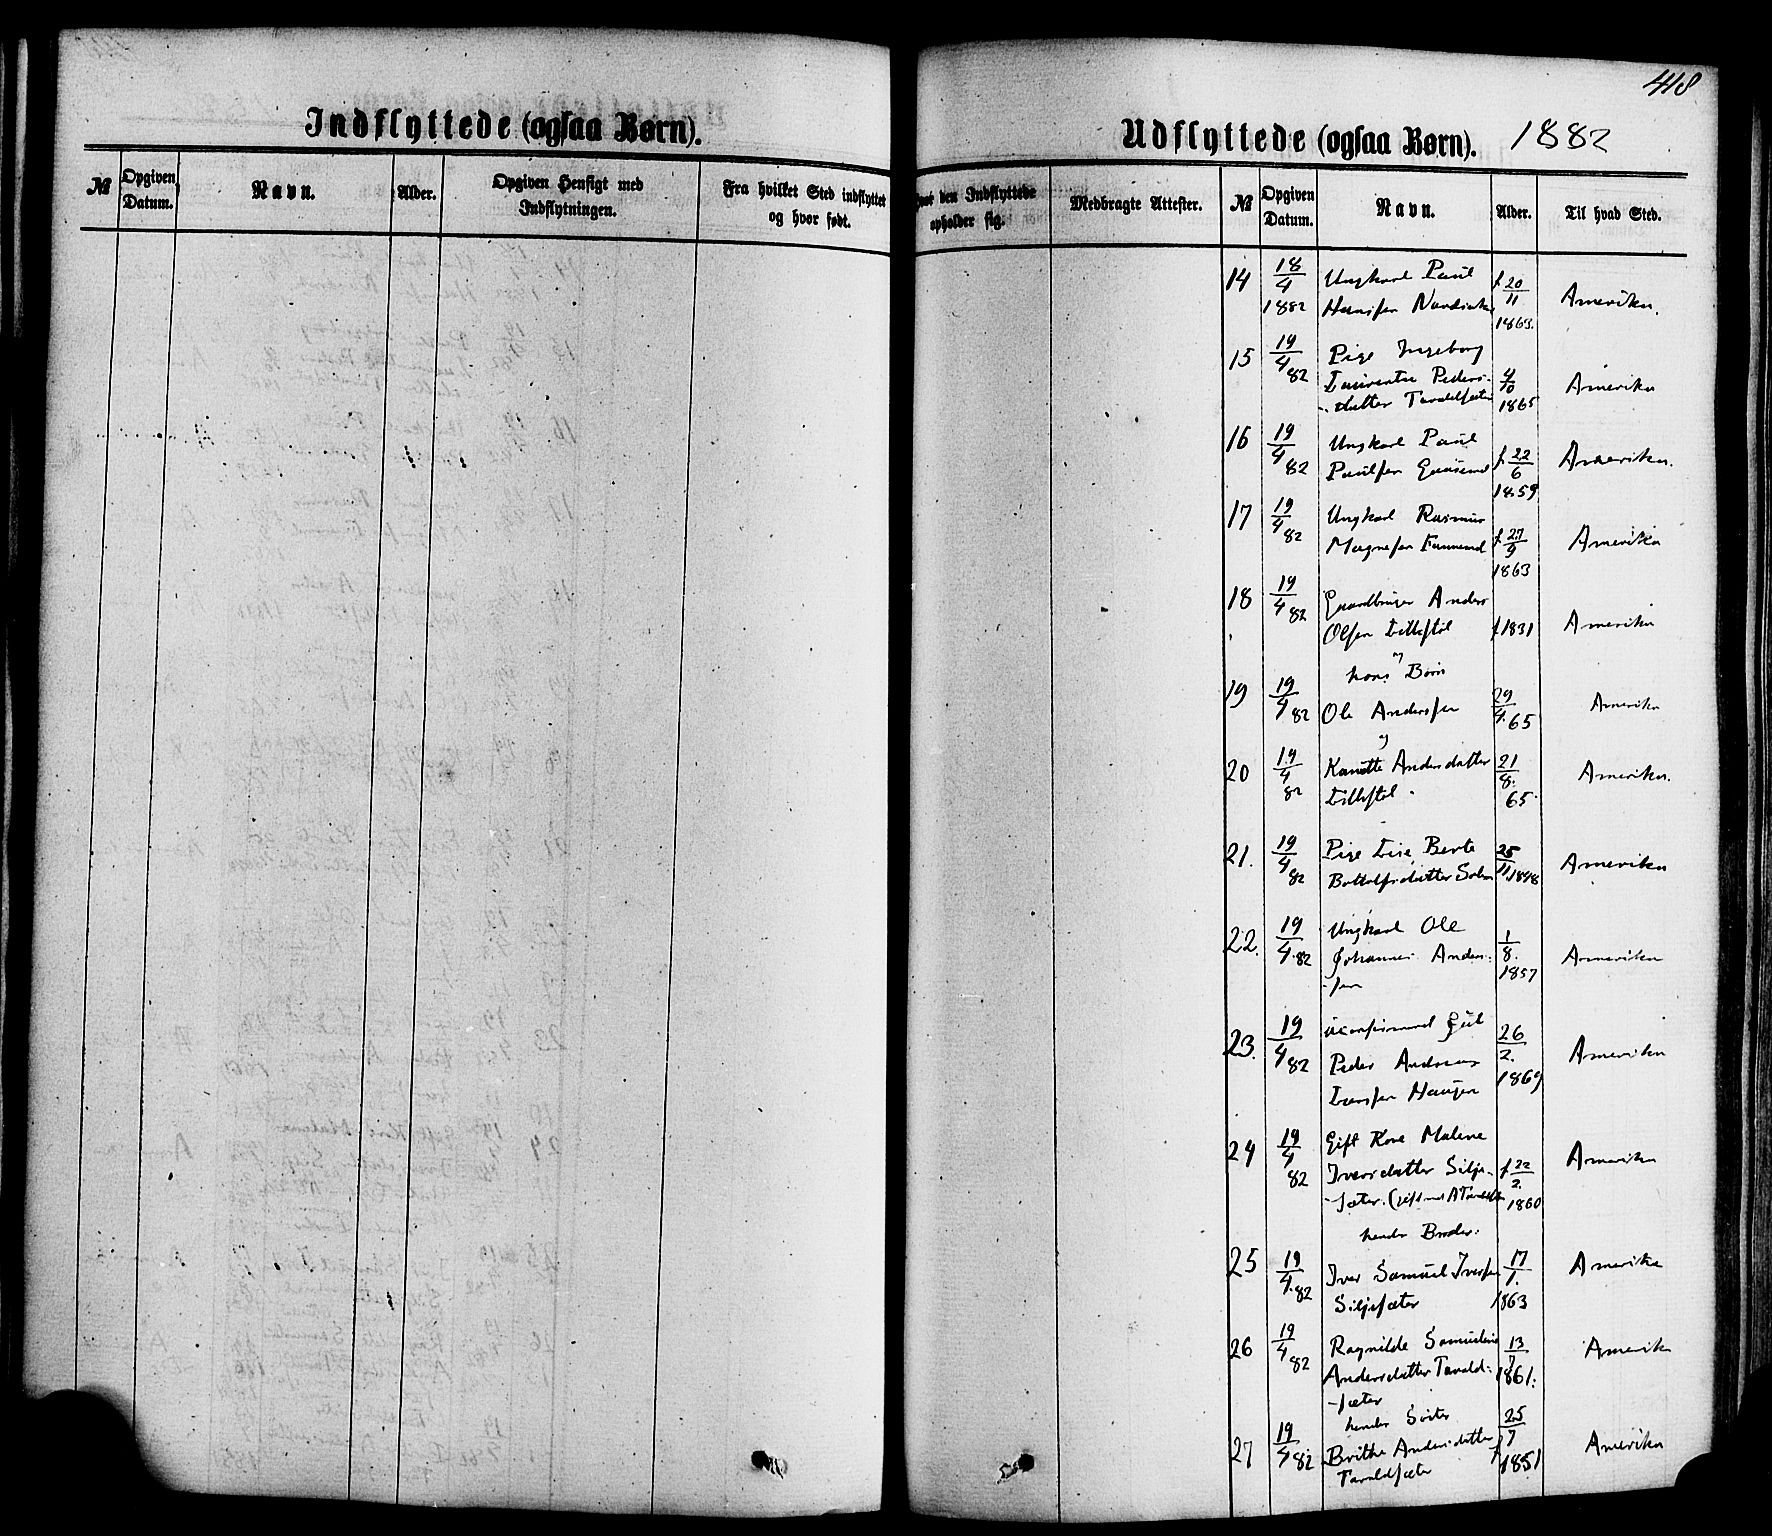 418
Indflyttede (ogsaa Børn).
№
Opgiven Datum.
Navn.
Alder.
Opgiven Hensigt med Indflytningen.
Fra hvilket Sted indflyttet og hvor født.
Udflyttede (ogsaa Børn). 1882
den Indflyttede opholder sig.
Medbragte Attester.
№
Opgiven Datum.
Navn.
Alder.
Til hvad Sted.
14 18/4 1882 Ungkarl Paul
Hansen f 20/11 1863. Amerika.
15 19/4 82 Pige Ingeborg
Laurentse Peders-
datter Tavaldsæter 4/10 1865 Amerika
16 19/4 82 Ungkarl Paul
Paulsen f 22/6 1859 Amerika.
17 19/4 82 Ungkarl Rasmus
Magnesen f 27/9 1863 Amerika
18 19/4 82 Gaardbruger Anders
Olsen Lillestøl f 1831 Amerika
hans Børn
19 19/4 82 Ole Andersen 29/4. 65 Amerika
og
20 19/4 82 Kanutte Andersdatter
Lillestøl. 21/8. 65 Amerika.
21. 19/4 82 Pige Lise Berte
Bottolfsdatter 25/11. 1848 Amerika
22. 19/4. 82 Ungkarl Ole
Johannes Anders-
-sen 1/8. 1857 Amerika
23. 19/4 82 uconfirmered Gut
Peder Andreas
Larsen Haugen 26/2. 1869 Amerika
24 19/4 82 Gift Kone Malene
Iversdatter Silje-
-sæter. (gift med A f 22/2. 1860 Amerika
hendes Broder.
25 19/4. 82 Iver Samuel Iversen
Siljesæter 17/1. 1863 Amerika
26 19/4 82 Ragnilde Samueline
Andersdatter Tavald-
-sæter 13/7 1861. Amerik
hendes Søster
27 19/4 82 Brithe Andersdatter
Tavaldsæter 25/7 1851 Amerika